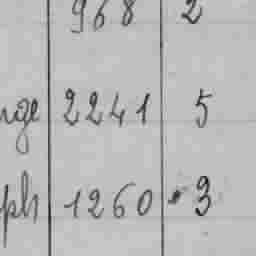 968 2
nge 2241 5
ph 1260 3